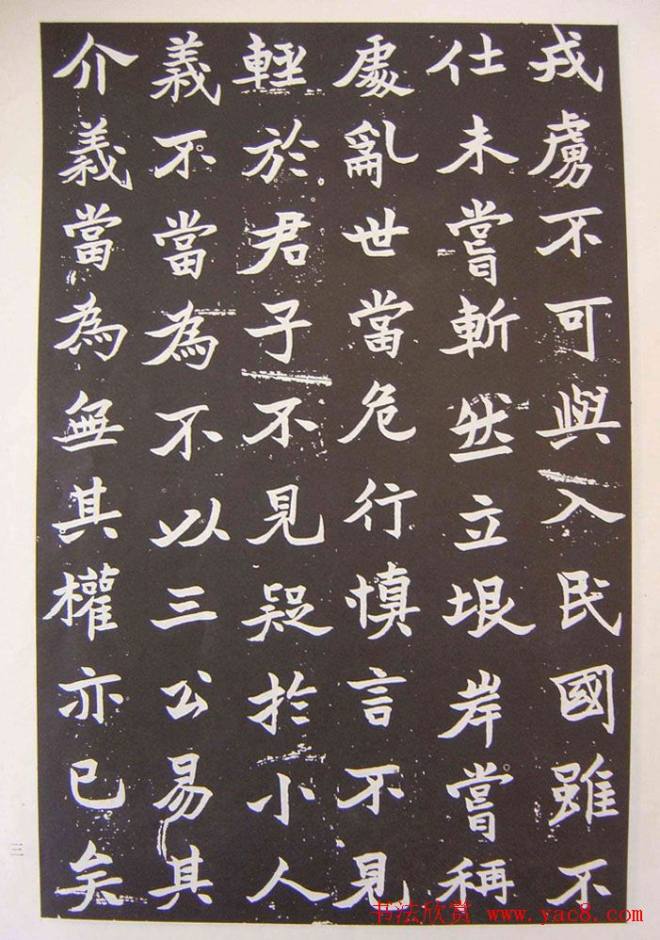 戎虜不可與入民國雖不
仕未嘗斬然立垠岸嘗稱
處亂世當危行慎言不見
輕於君子不見疑於小人
義不當為不以三公易其
介義當為無其權亦已矣
三
书法欣赏 www.yac8.com